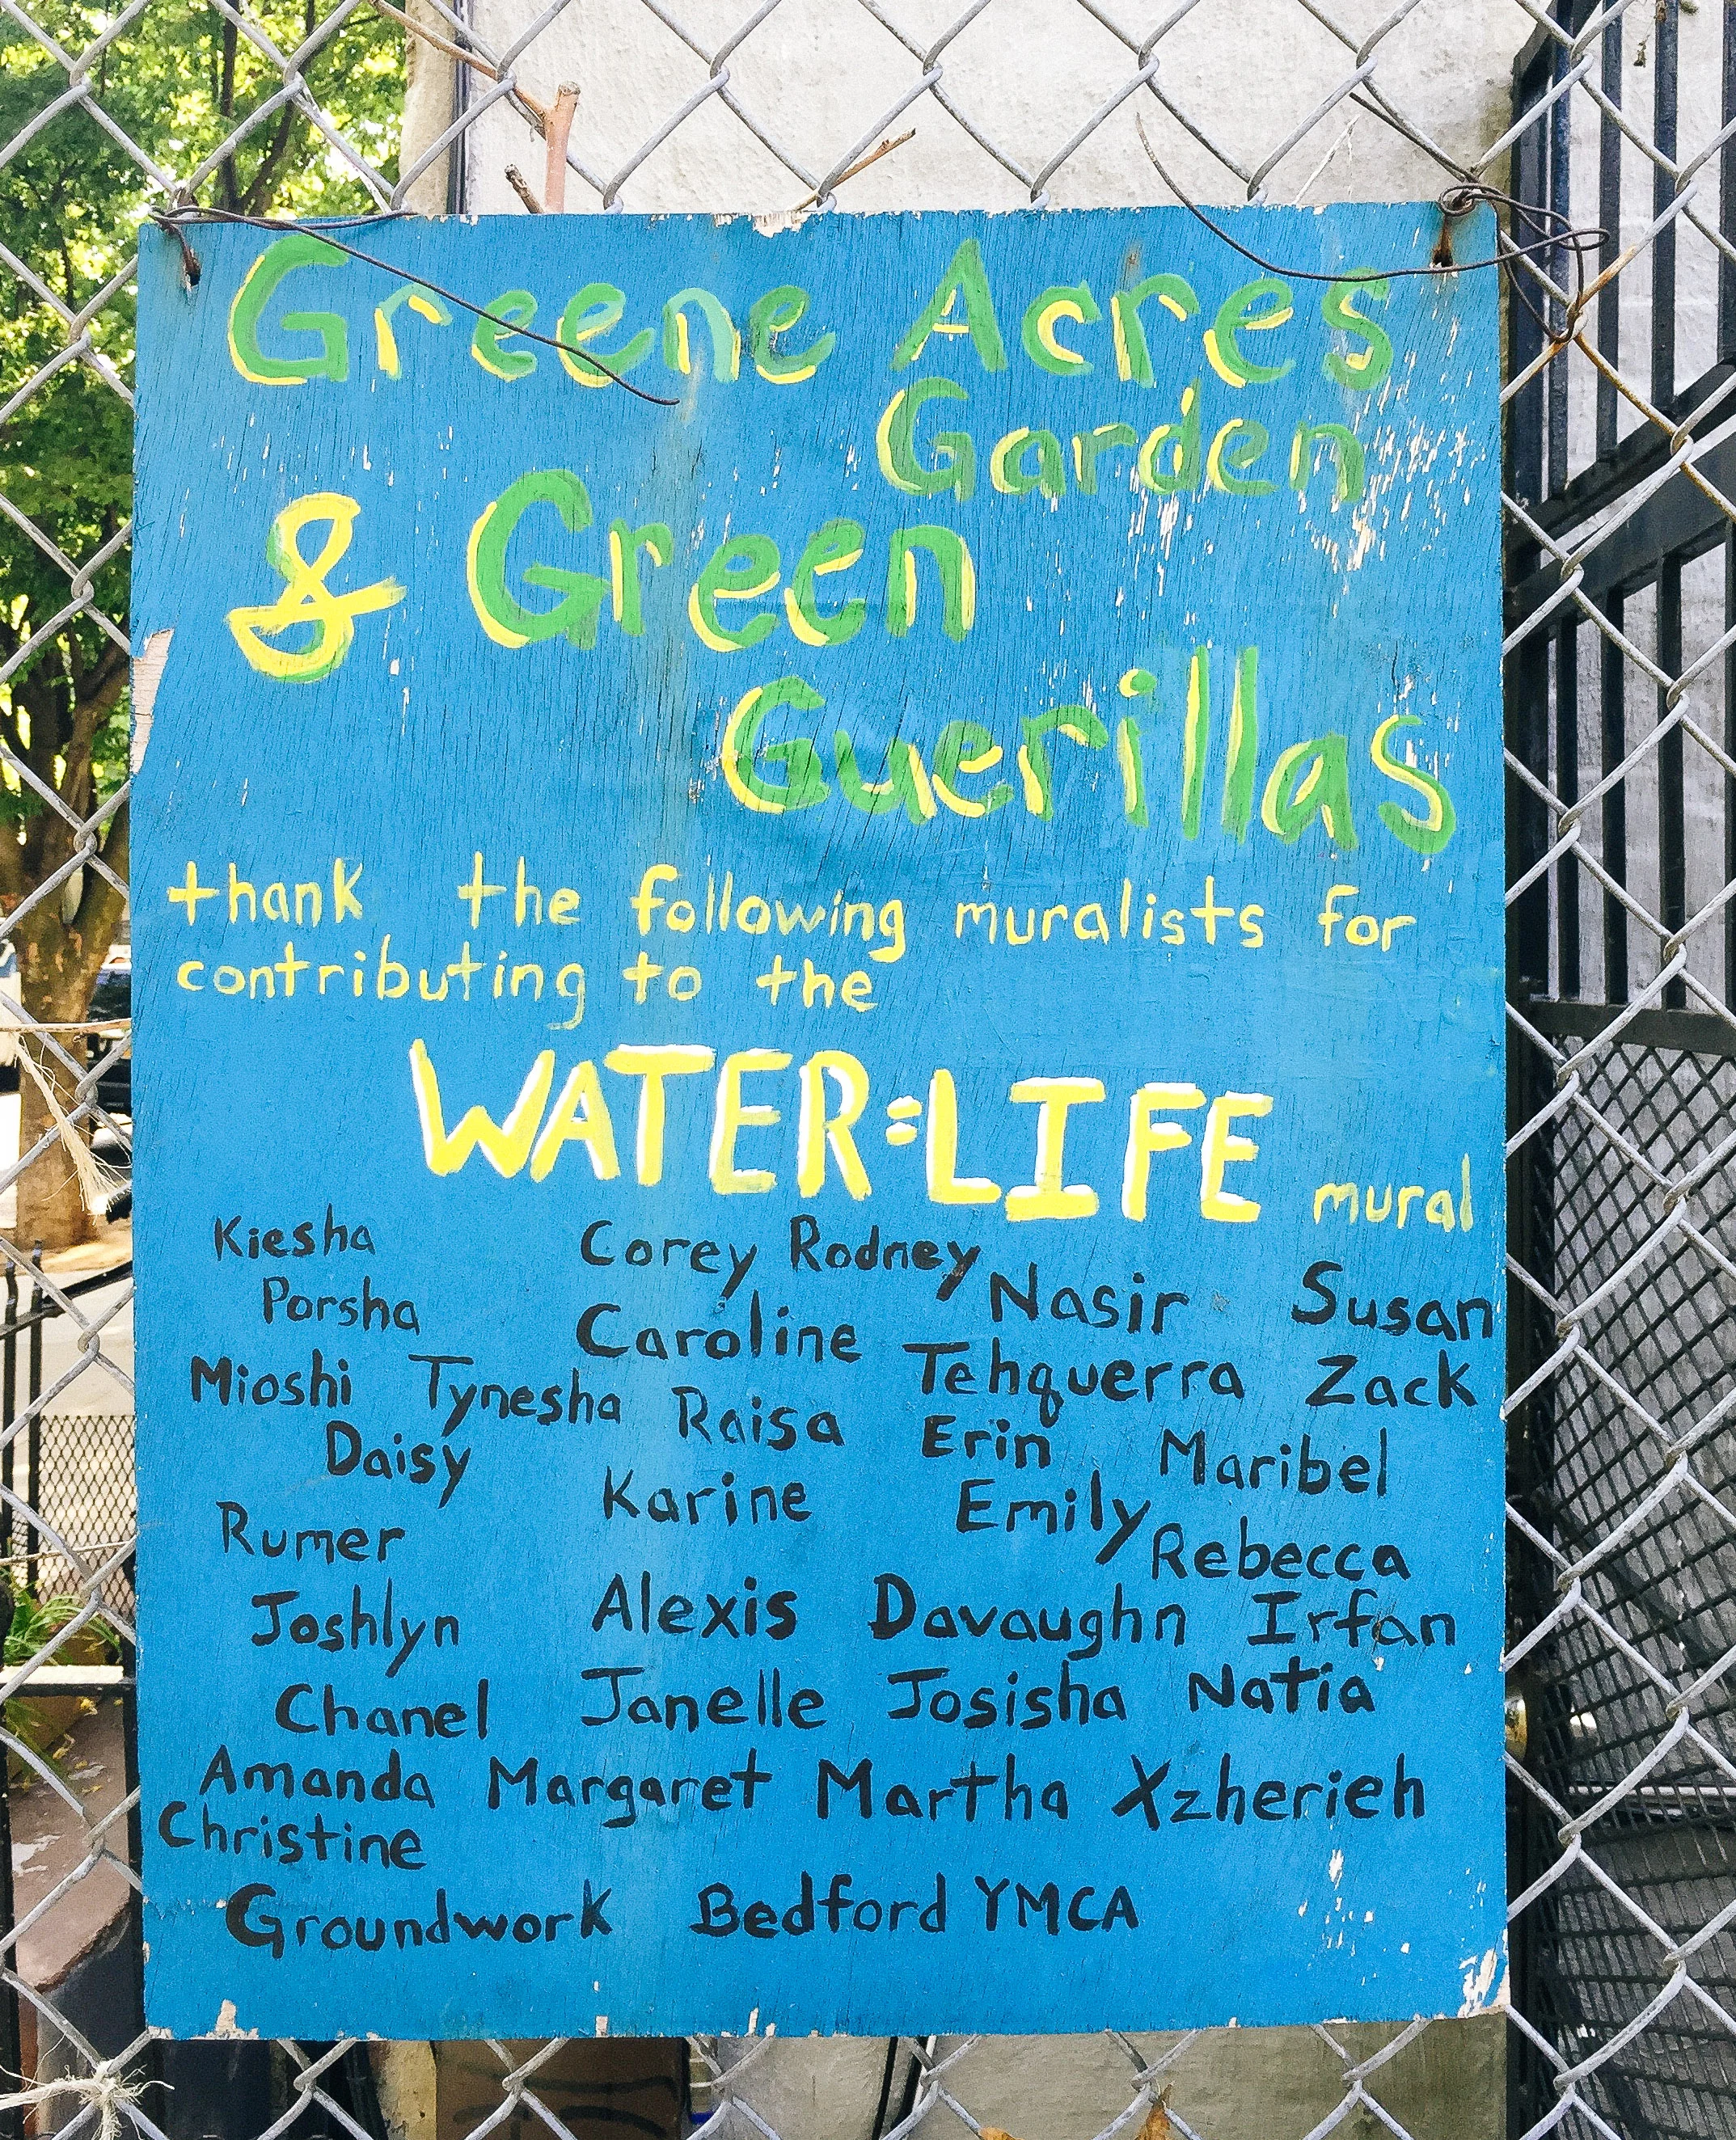 Greene Acres
Garden
& Green
Guerillas
thank the following muralists for
contributing to the
WATER=LIFE mural
Kiesha Corey Rodney Nasir Susan
Porsha Caroline Tehquerra Zack
Mioshi Tynesha Raisa Erin Maribel
Daisy Karine Emily Rebecca
Rumer
Joshlyn Alexis Davaughn Irfan
Chanel Janelle Josisha Natia
Amanda Margaret Martha Xzherieh
Christine
Groundwork Bedford YMCA